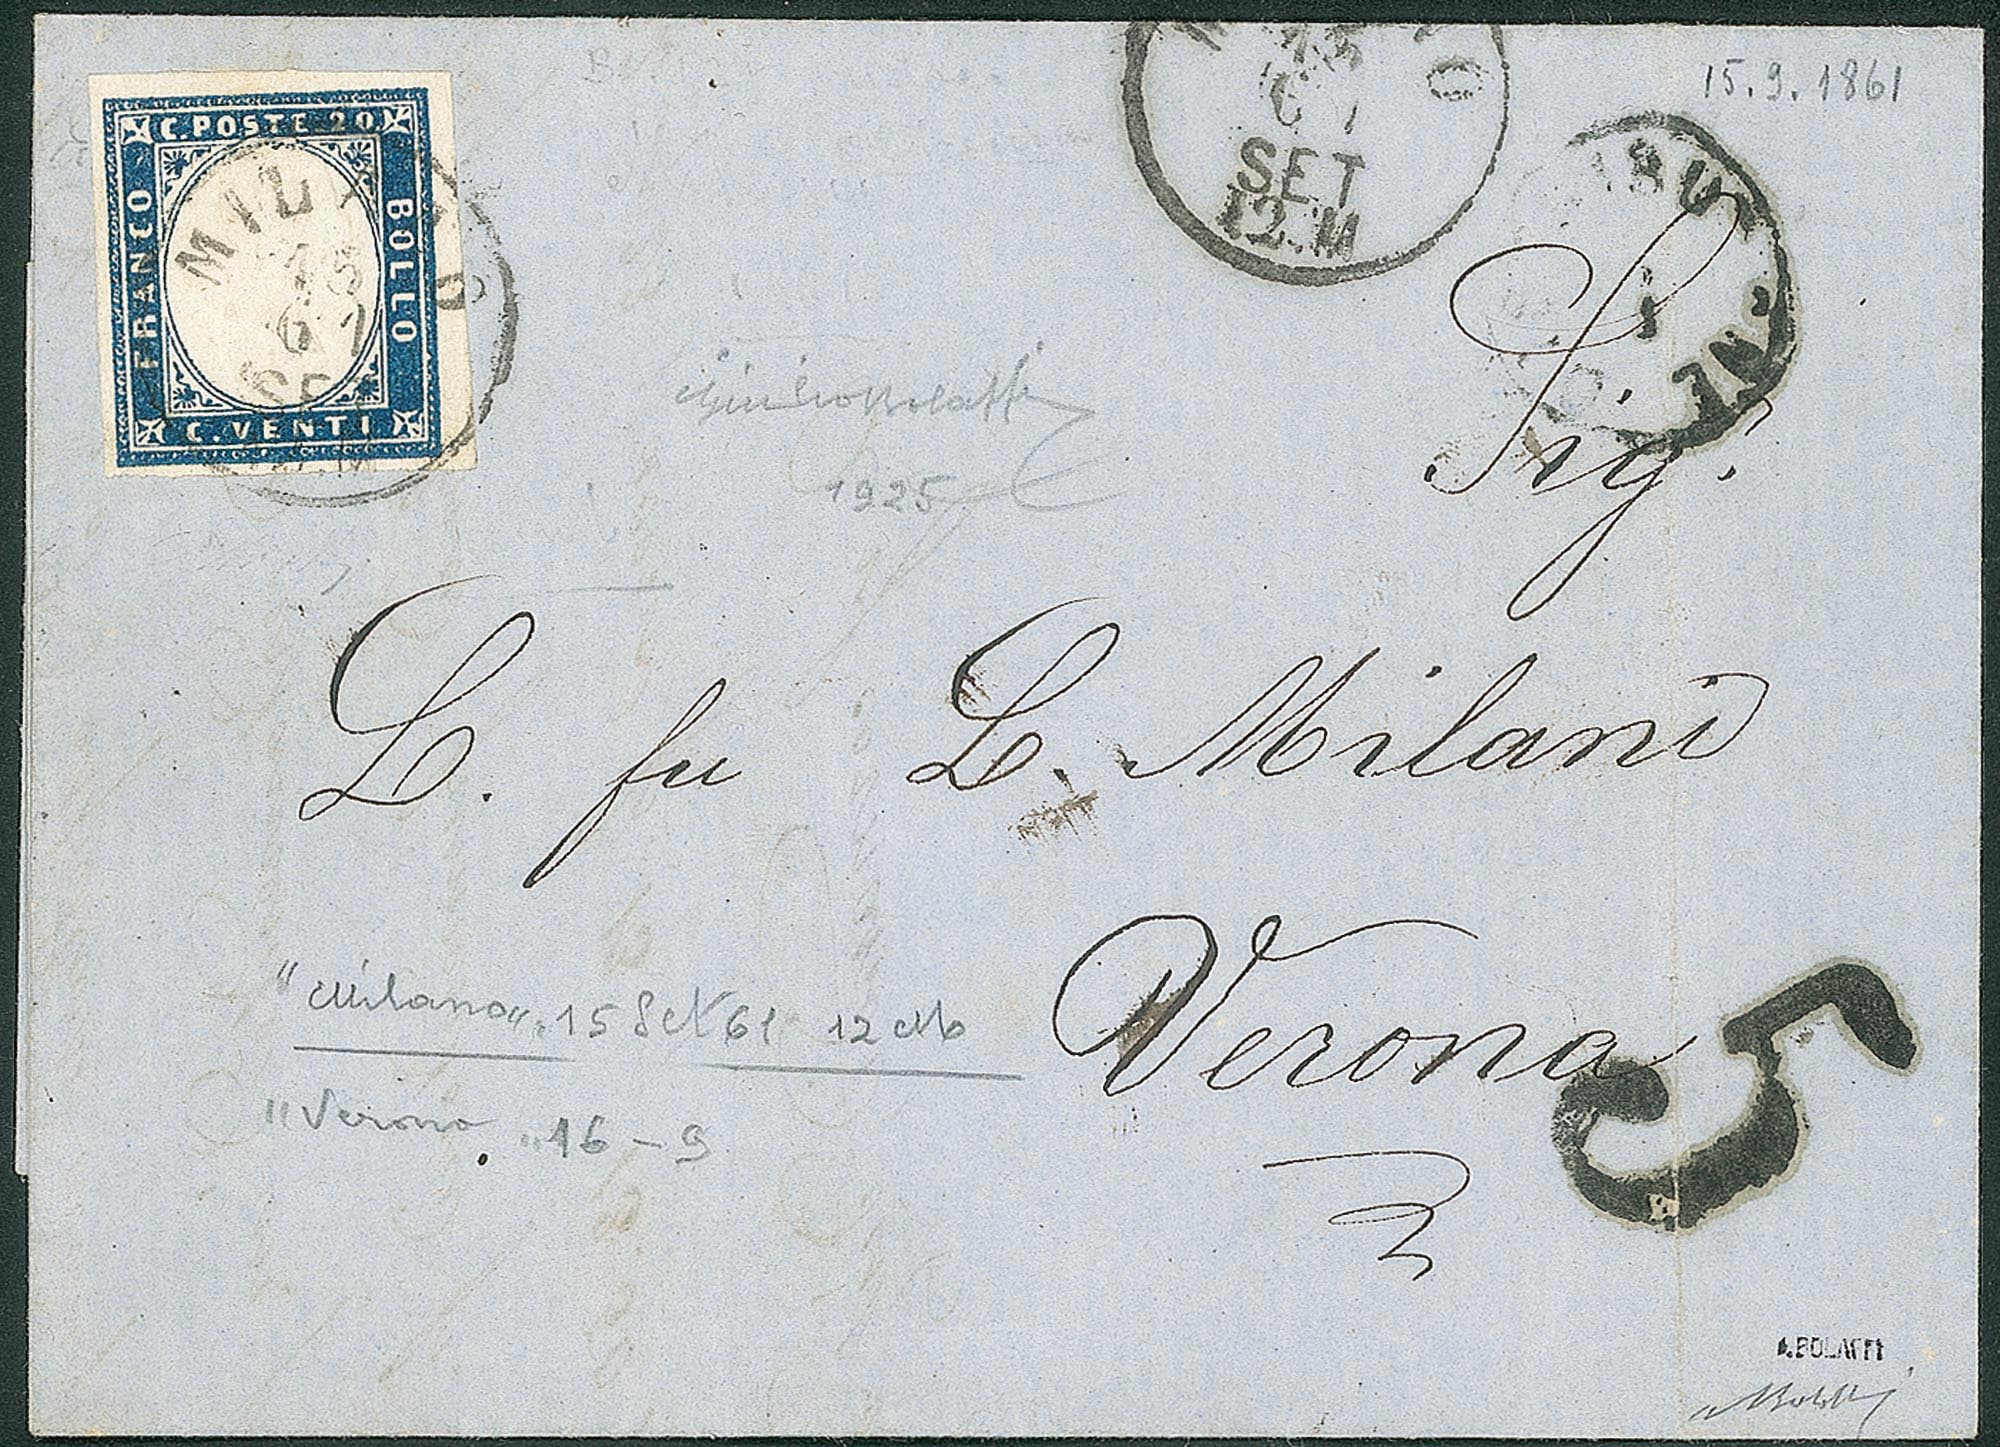 C. POSTE 20
FRANCO
BOLLO
C. VENTI
MILANO
15
61
SET
12.M
15
61
SET
12.M
15.9.1861
1925
Sig.r
L. fu L. Milani
Verona
"Milano" 15 Set 61 12 M
"Verona" 16-9
5
A.BOLAFFI